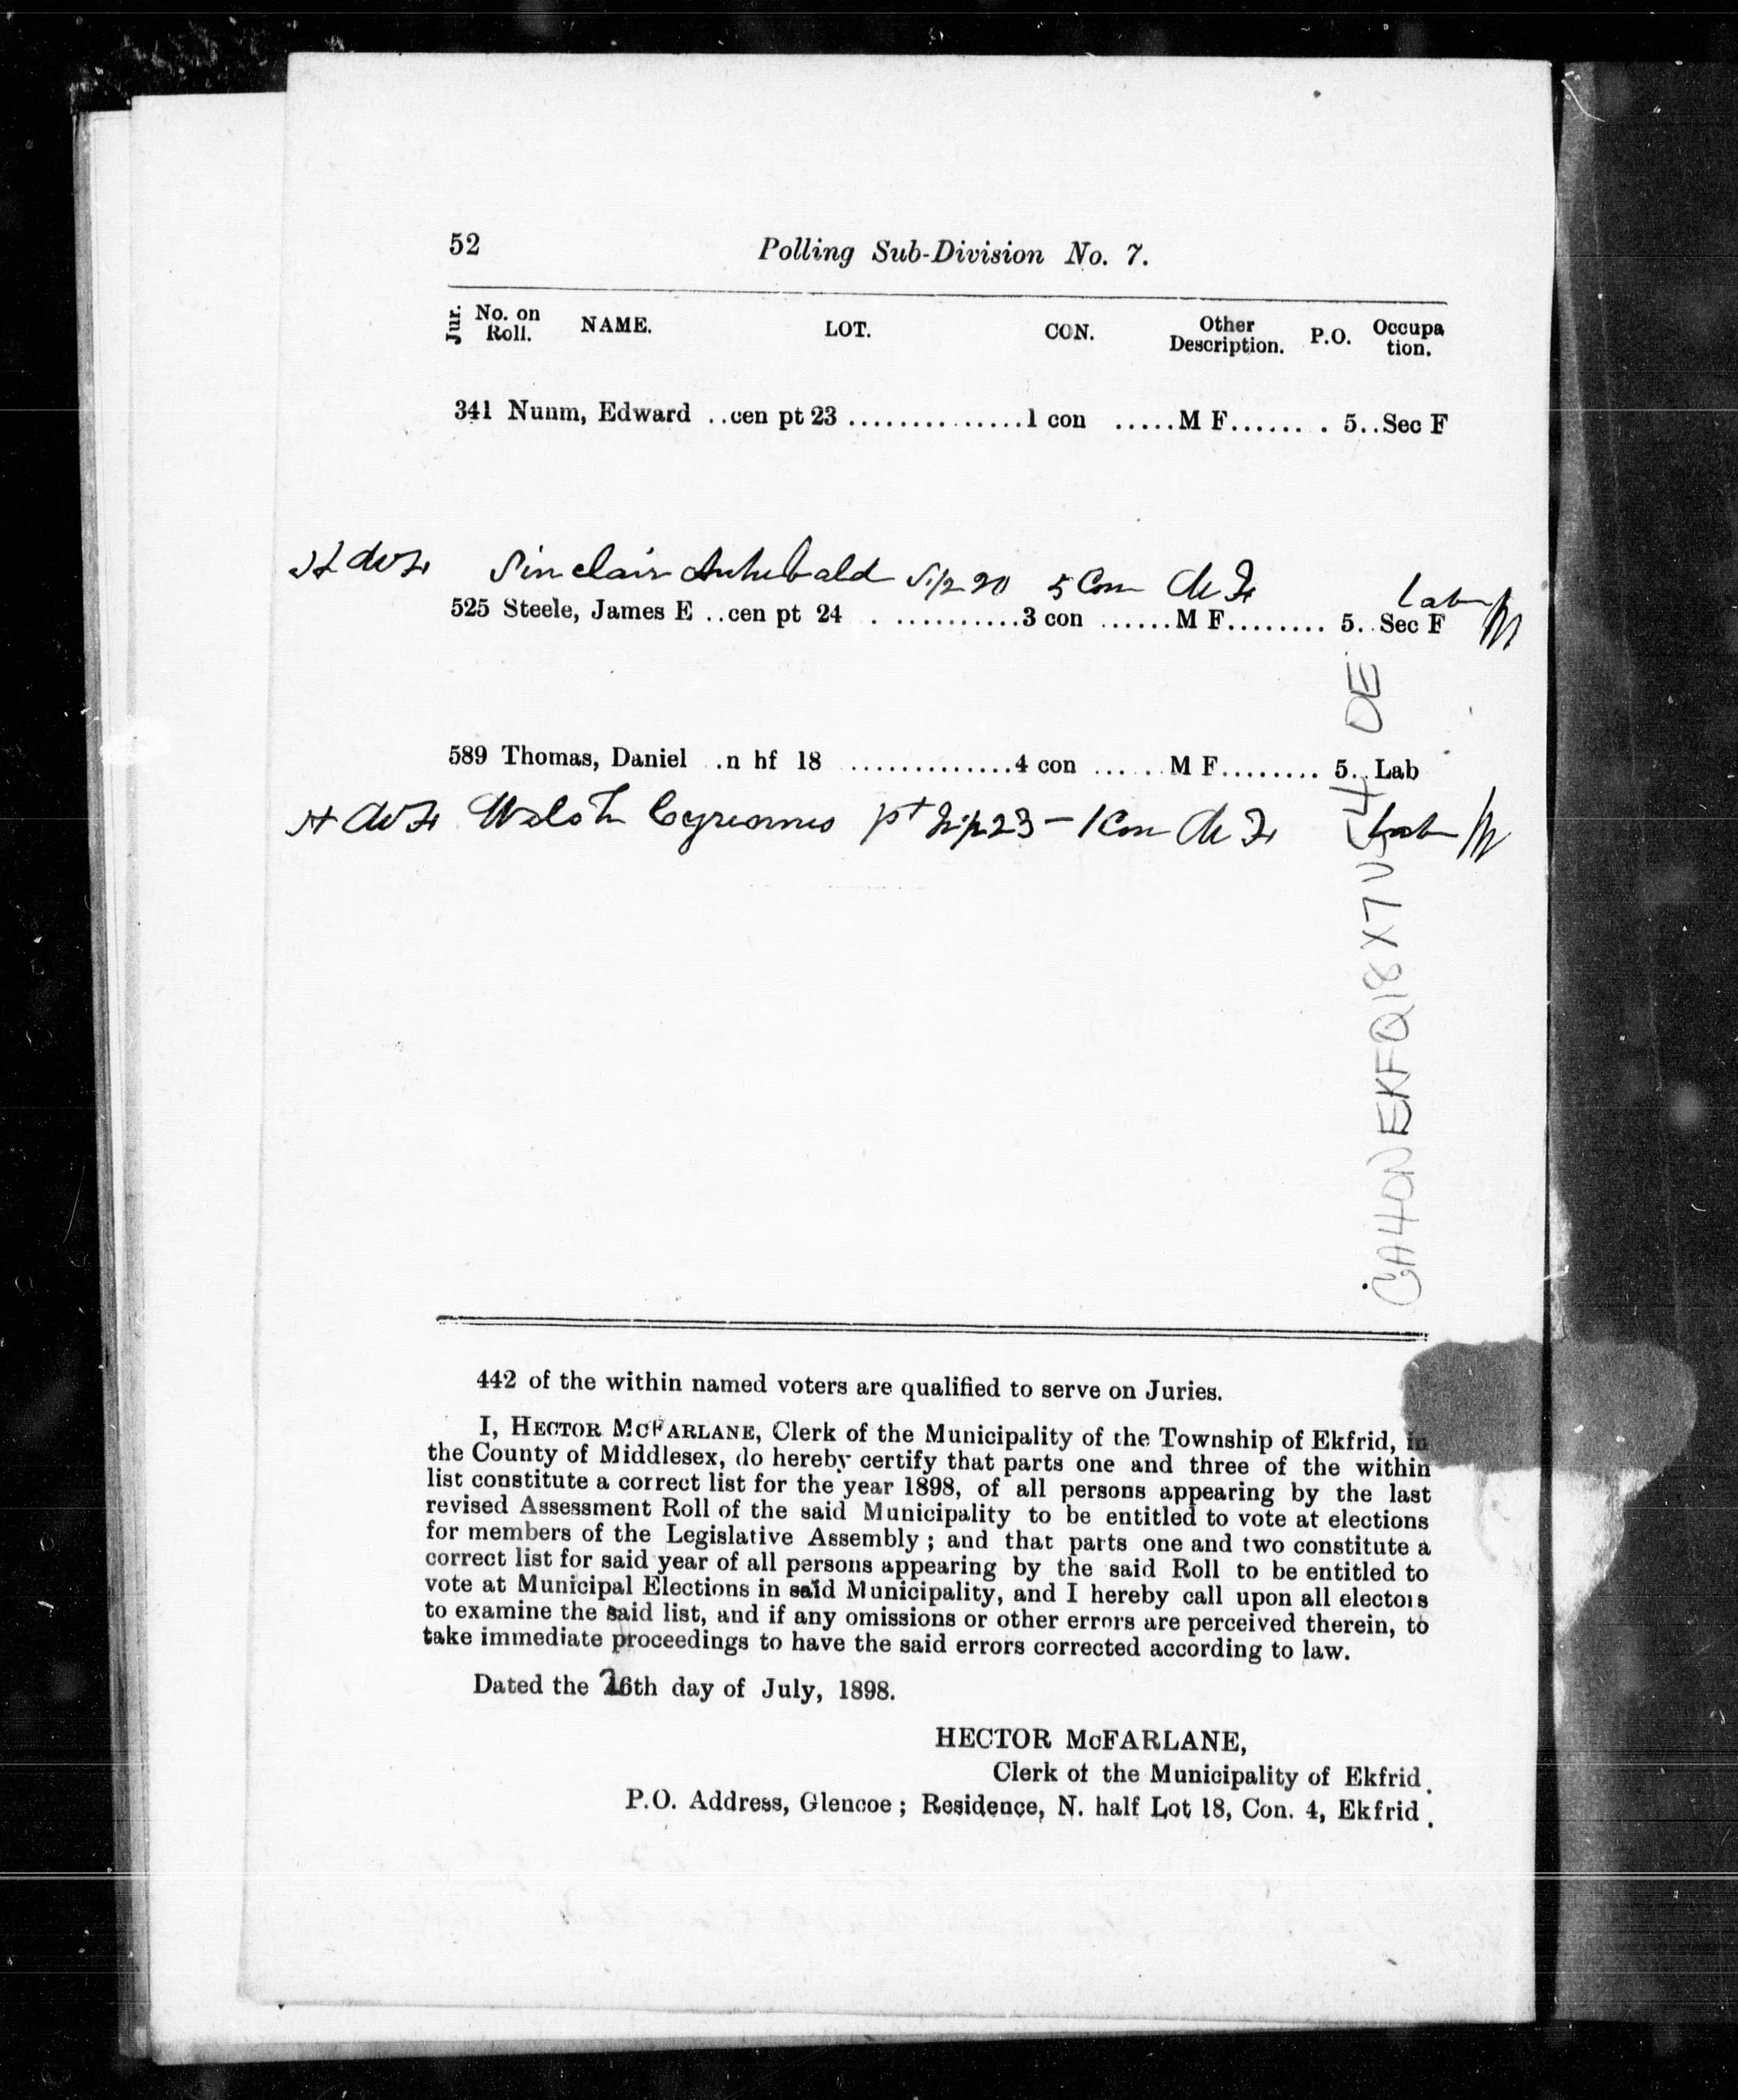 52 Polling Sub-Division No. 7.
Jur. No. on Roll. NAME. LOT. CON. Other Description. P.O. Occupa tion.
341 Nunm, Edward ..cen pt 23 ..............1 con .....M F....... . 5..Sec F
Sinclair Archibald S 1/2 20 5 Con M F Lab
525 Steele, James E ..cen pt 24 . ...........3 con ......M F........ 5..Sec F
589 Thomas, Daniel ..n hf 18 ..............4 con ... . . M F........ 5..Lab
Welsh pt 23 - 1 Con M F Lab
CA4ON EKF Q18 X7V54 DE
442 of the within named voters are qualified to serve on Juries.
I, HECTOR McFARLANE, Clerk of the Municipality of the Township of Ekfrid, in
the County of Middlesex, do hereby certify that parts one and three of the within
list constitute a correct list for the year 1898, of all persons appearing by the last
revised Assessment Roll of the said Municipality to be entitled to vote at elections
for members of the Legislative Assembly ; and that parts one and two constitute a
correct list for said year of all persons appearing by the said Roll to be entitled to
vote at Municipal Elections in said Municipality, and I hereby call upon all electors
to examine the said list, and if any omissions or other errors are perceived therein, to
take immediate proceedings to have the said errors corrected according to law.
Dated the 26th day of July, 1898.
HECTOR McFARLANE,
Clerk of the Municipality of Ekfrid.
P.O. Address, Glencoe ; Residence, N. half Lot 18, Con. 4, Ekfrid.